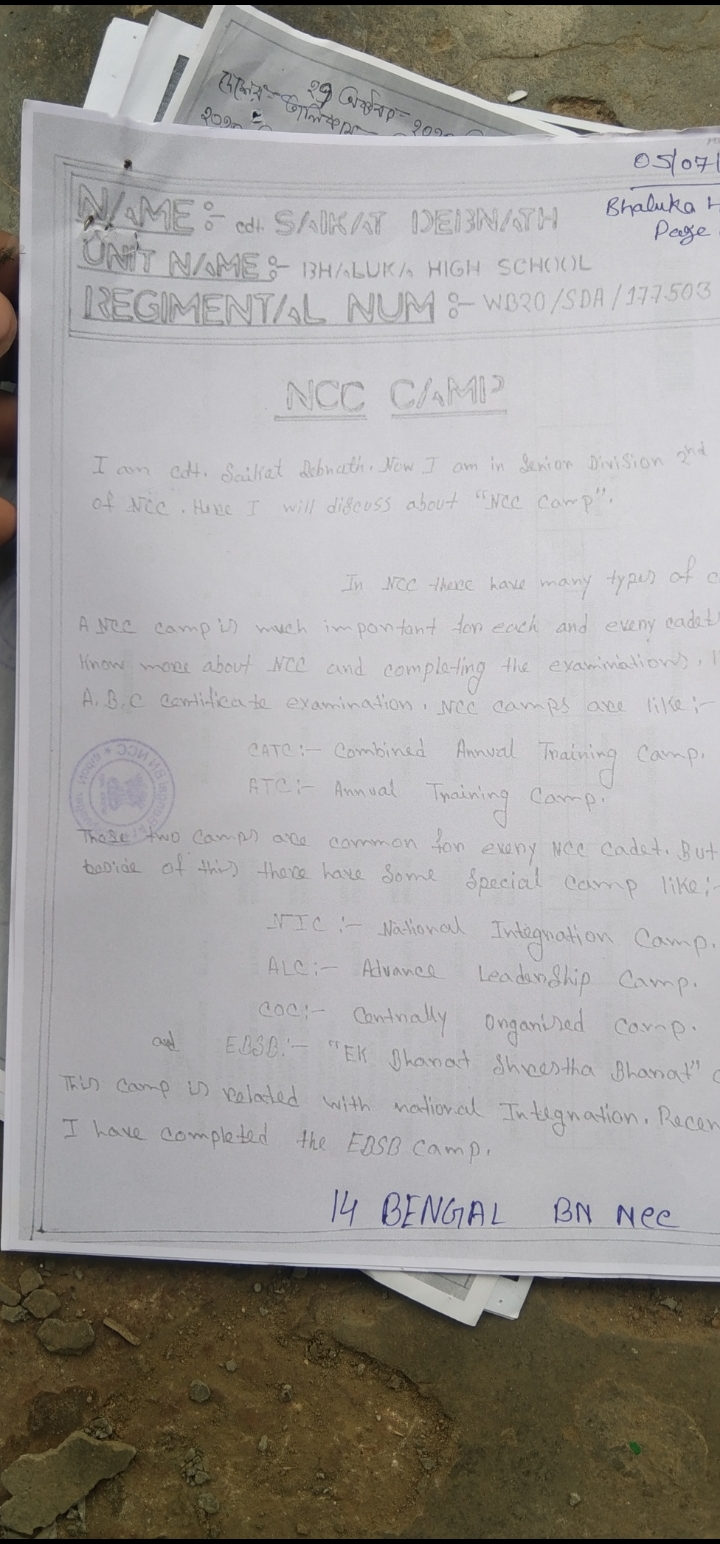 ২9 অক্টোবর-
05/07/
Bhaluka H
Page
NAME:- cdt. SAIKAT DEBNATH
UNIT NAME:- BHALUKA HIGH SCHOOL
REGIMENTAL NUM :- WB20/SDA/177503
NCC CAMP
I am cdt. Saikat Debnath. Now I am in Senior Division 2nd
of NCC. Here I will discuss about "NCC Camp".
In NCC there have many types of c
A NCC camp is much important for each and every cadet
know more about NCC and completing the examinations, l
A, B, C certificate examination. NCC camps are like:-
CATC:- Combined Annual Training Camp.
ATC:- Annual Training Camp.
These two camps are common for every NCC cadet. But
beside of this there have some special camp like:-
NIC:- National Integration Camp.
ALC:- Advance Leadership Camp.
COC:- Centrally Organised Camp.
and EBSB:- "EK Bharat Shrestha Bharat" c
This camp is related with national Integration. Recen
I have completed the EBSB camp.
14 BENGAL BN NCC